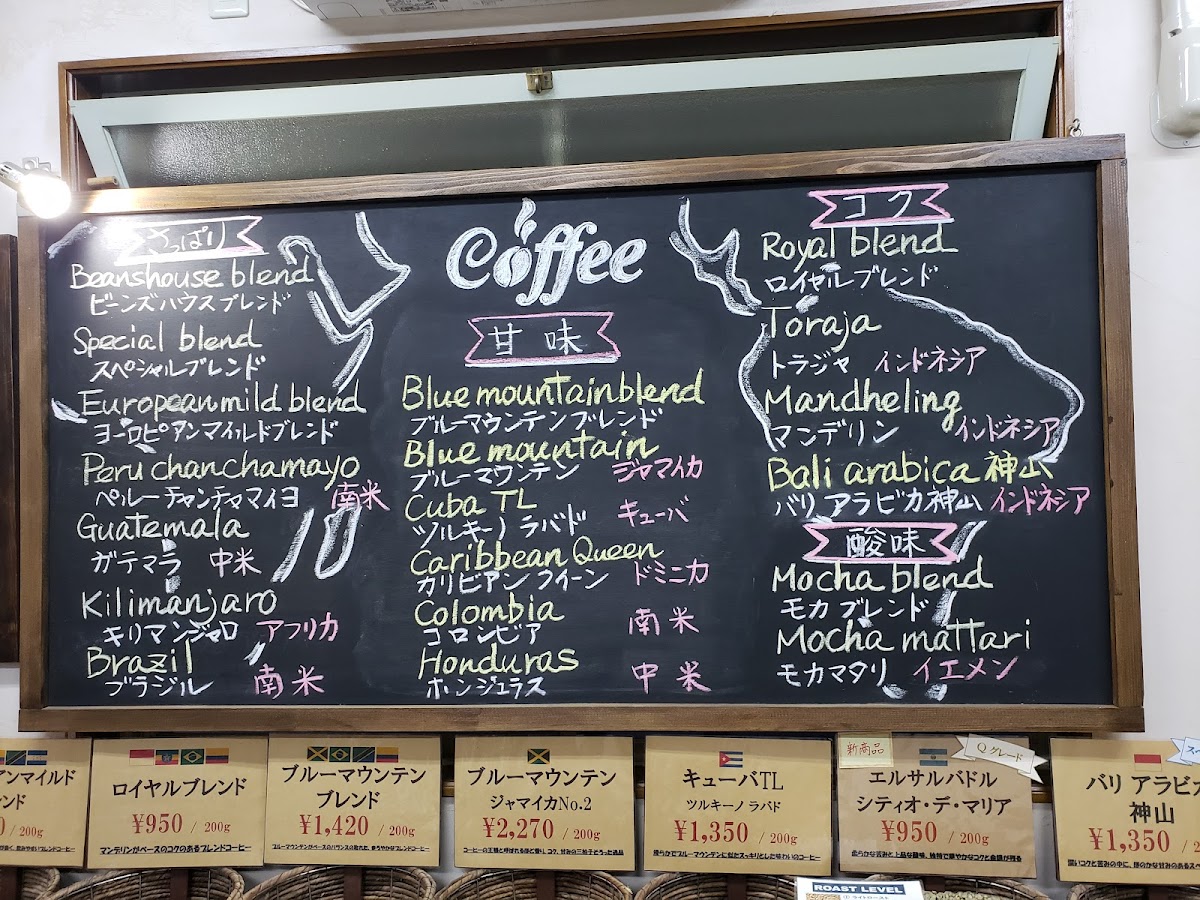 さっぱり
Beanshouse blend
ビーンズハウスブレンド
Special blend
スペシャルブレンド
European mild blend
ヨーロピアンマイルドブレンド
Peru chanchamayo
ペルーチャンチャマイヨ 南米
Guatemala
ガテマラ 中米
Kilimanjaro
キリマンジャロ アフリカ
Brazil
ブラジル 南米
Coffee
甘味
Blue mountain blend
ブルーマウンテンブレンド
Blue mountain
ブルーマウンテン ジャマイカ
Cuba TL
ツルキーノ ラバド キューバ
Caribbean Queen
カリビアン クイーン ドミニカ
Colombia
コロンビア 南米
Honduras
ホンジュラス 中米
コク
Royal blend
ロイヤルブレンド
Toraja
トラジャ インドネシア
Mandheling
マンデリン インドネシア
Bali arabica 神山
バリ アラビカ神山 インドネシア
酸味
Mocha blend
モカブレンド
Mocha mattari
モカマタリ イエメン
アンマイルド
ンド
/ 200g
ロイヤルブレンド
¥950 / 200g
マンデリンがベースのコクのあるブレンドコーヒー
ブルーマウンテン
ブレンド
¥1,420 / 200g
ブルーマウンテンがベースのバランスの取れた、まろやかなブレンドコーヒー
ブルーマウンテン
ジャマイカNo.2
¥2,270 / 200g
コーヒーの王様と呼ばれるほど香り、コク、甘みの三拍子そろった逸品
キューバTL
ツルキーノ ラバド
¥1,350 / 200g
滑らかでブルーマウンテンに似たスッキリとした味わいのコーヒー
新商品
Qグレード
エルサルバドル
シティオ・デ・マリア
¥950 / 200g
柔らかな苦みと上品な酸味、独特で華やかなコクと余韻が残る
バリ アラビカ
神山
¥1,350 / 200
深いコクと苦みの中に、ほのかな甘みのある
ROAST LEVEL